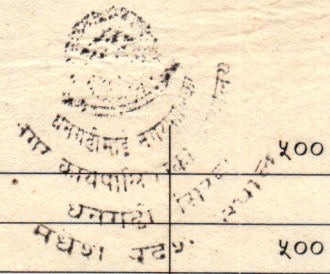 धनगढीमाई नगरपालिका
नगर कार्यपालिकाको
धनगढी सिरहा
मधेश प्रदेश नेपाल
५००
५००